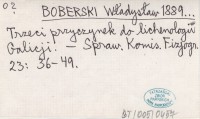 02
BOBERSKI Władysław 1889...
Trzeci przyczynek do lichenologii
Galicji. — Spraw. Komis. Fizjogr.
23: 36-49.